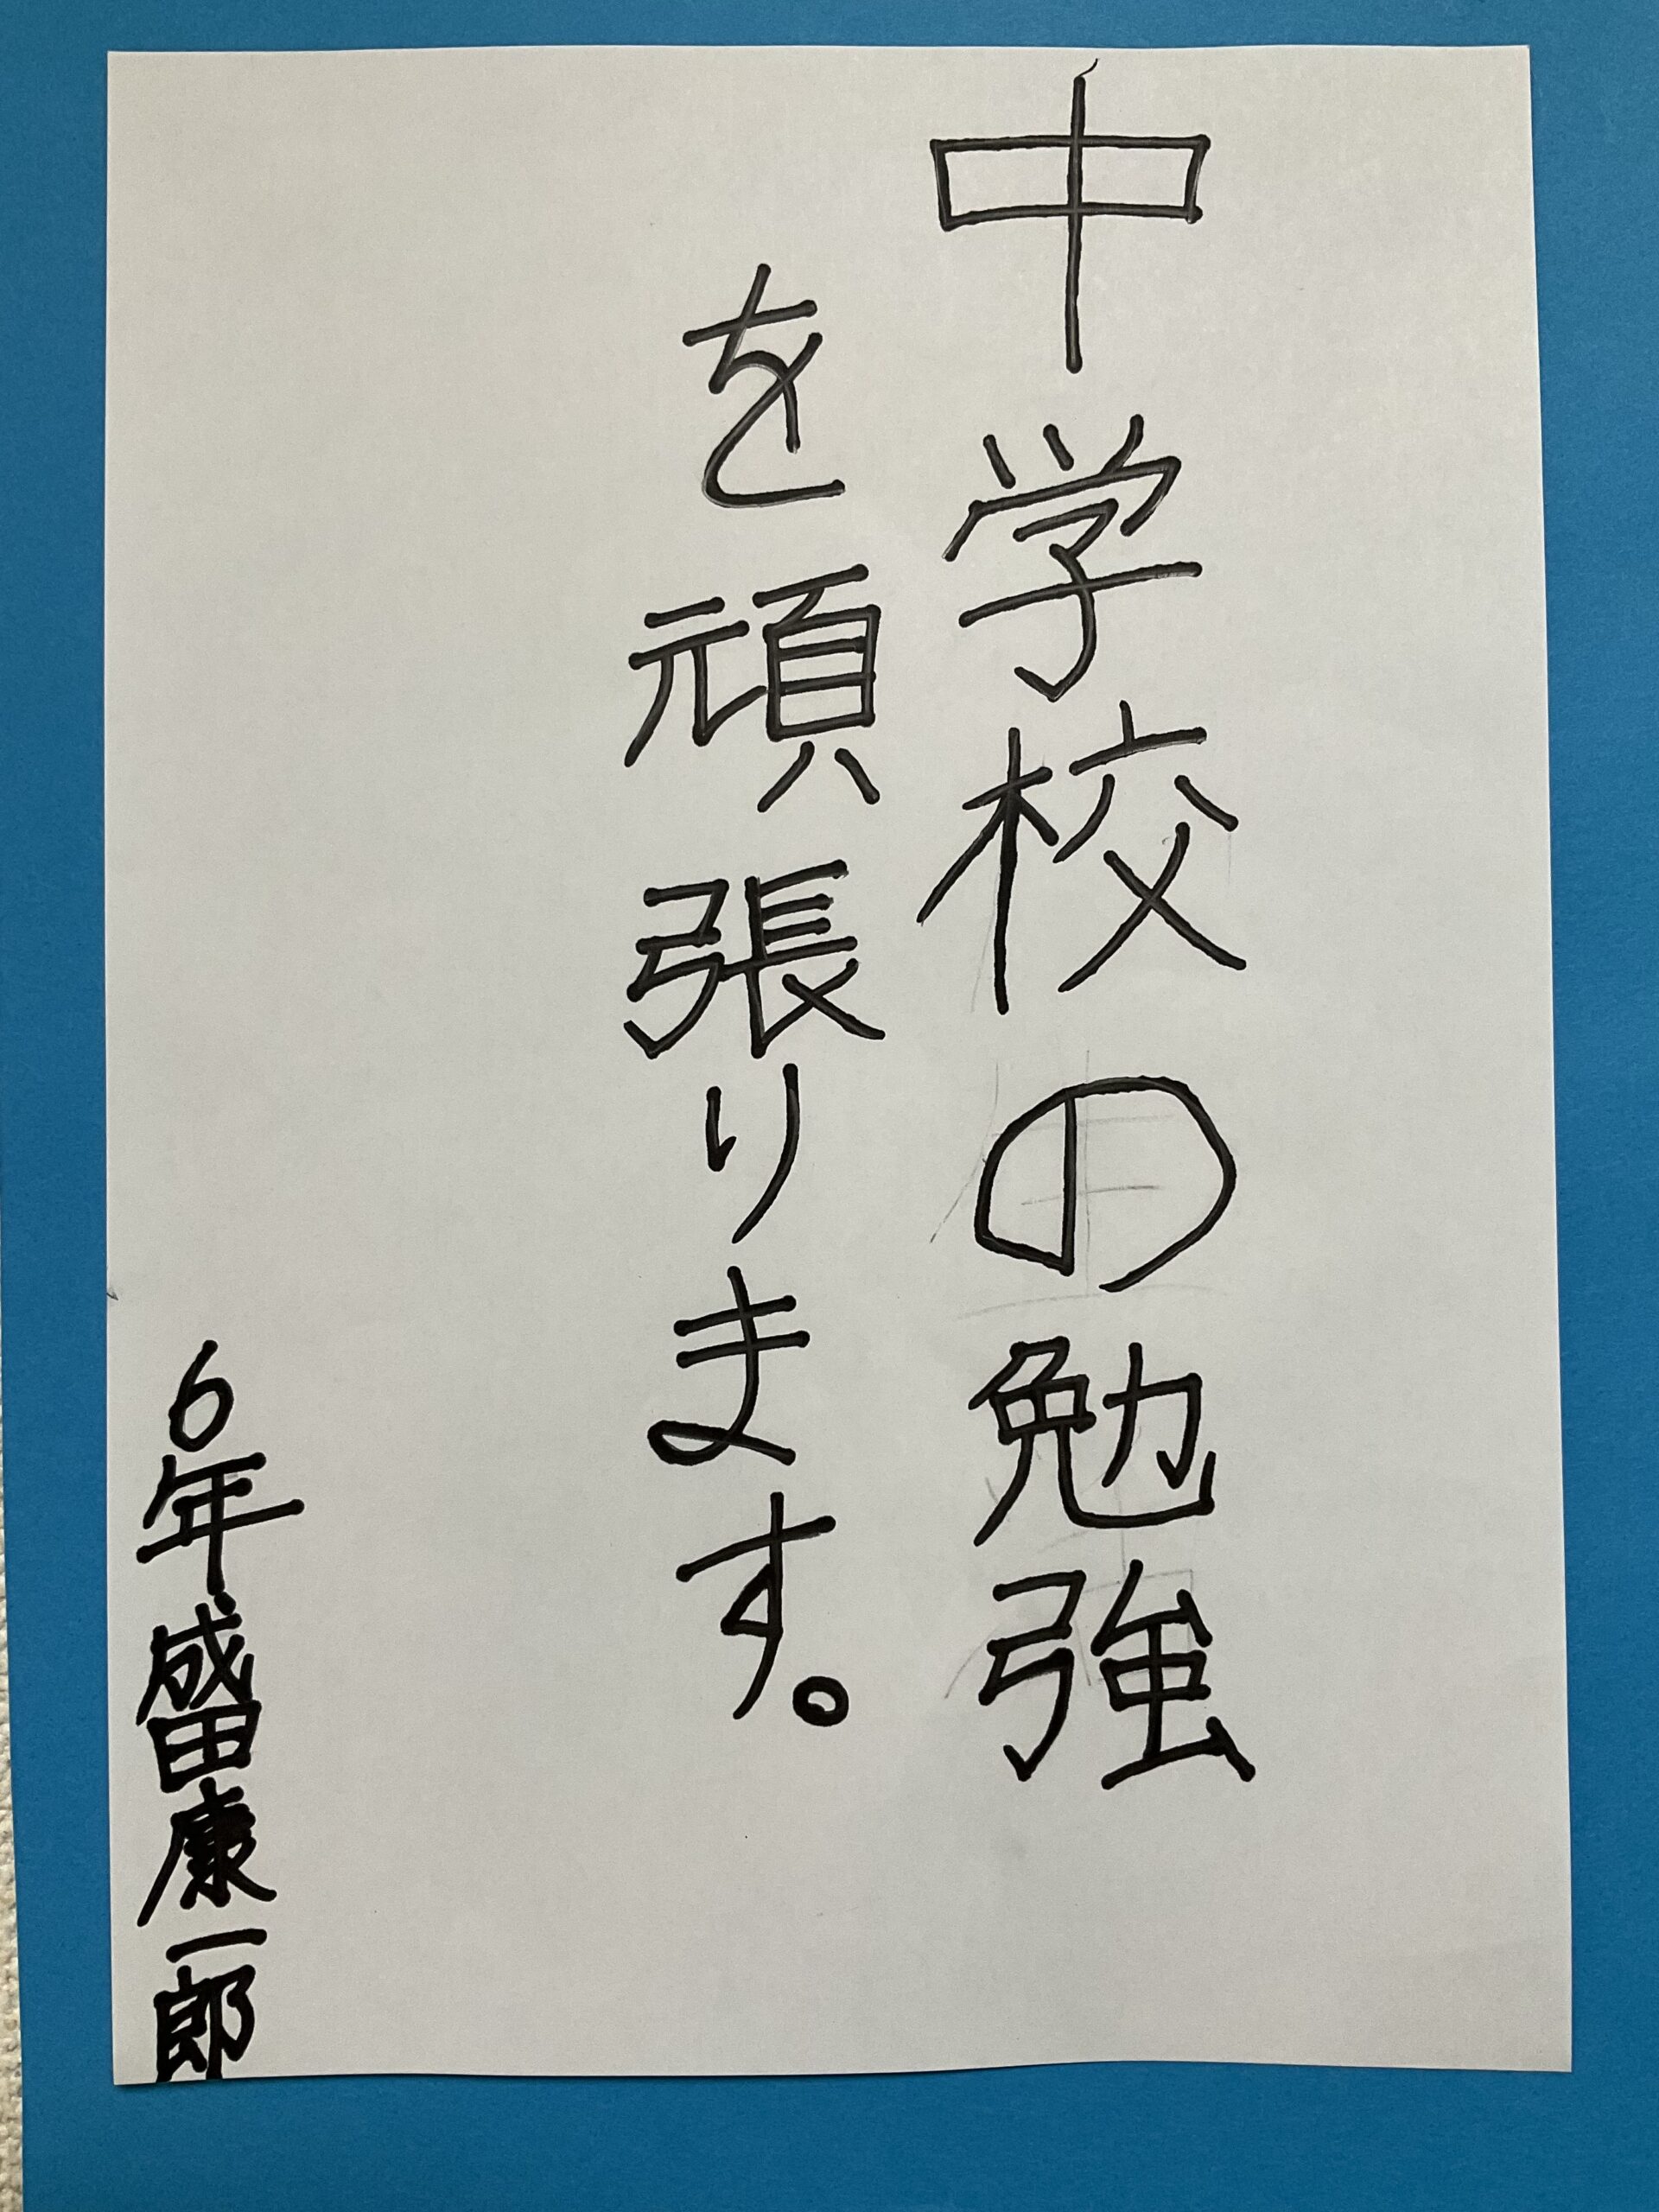 中学校の勉強
を頑張ります。
6年盛田康一郎